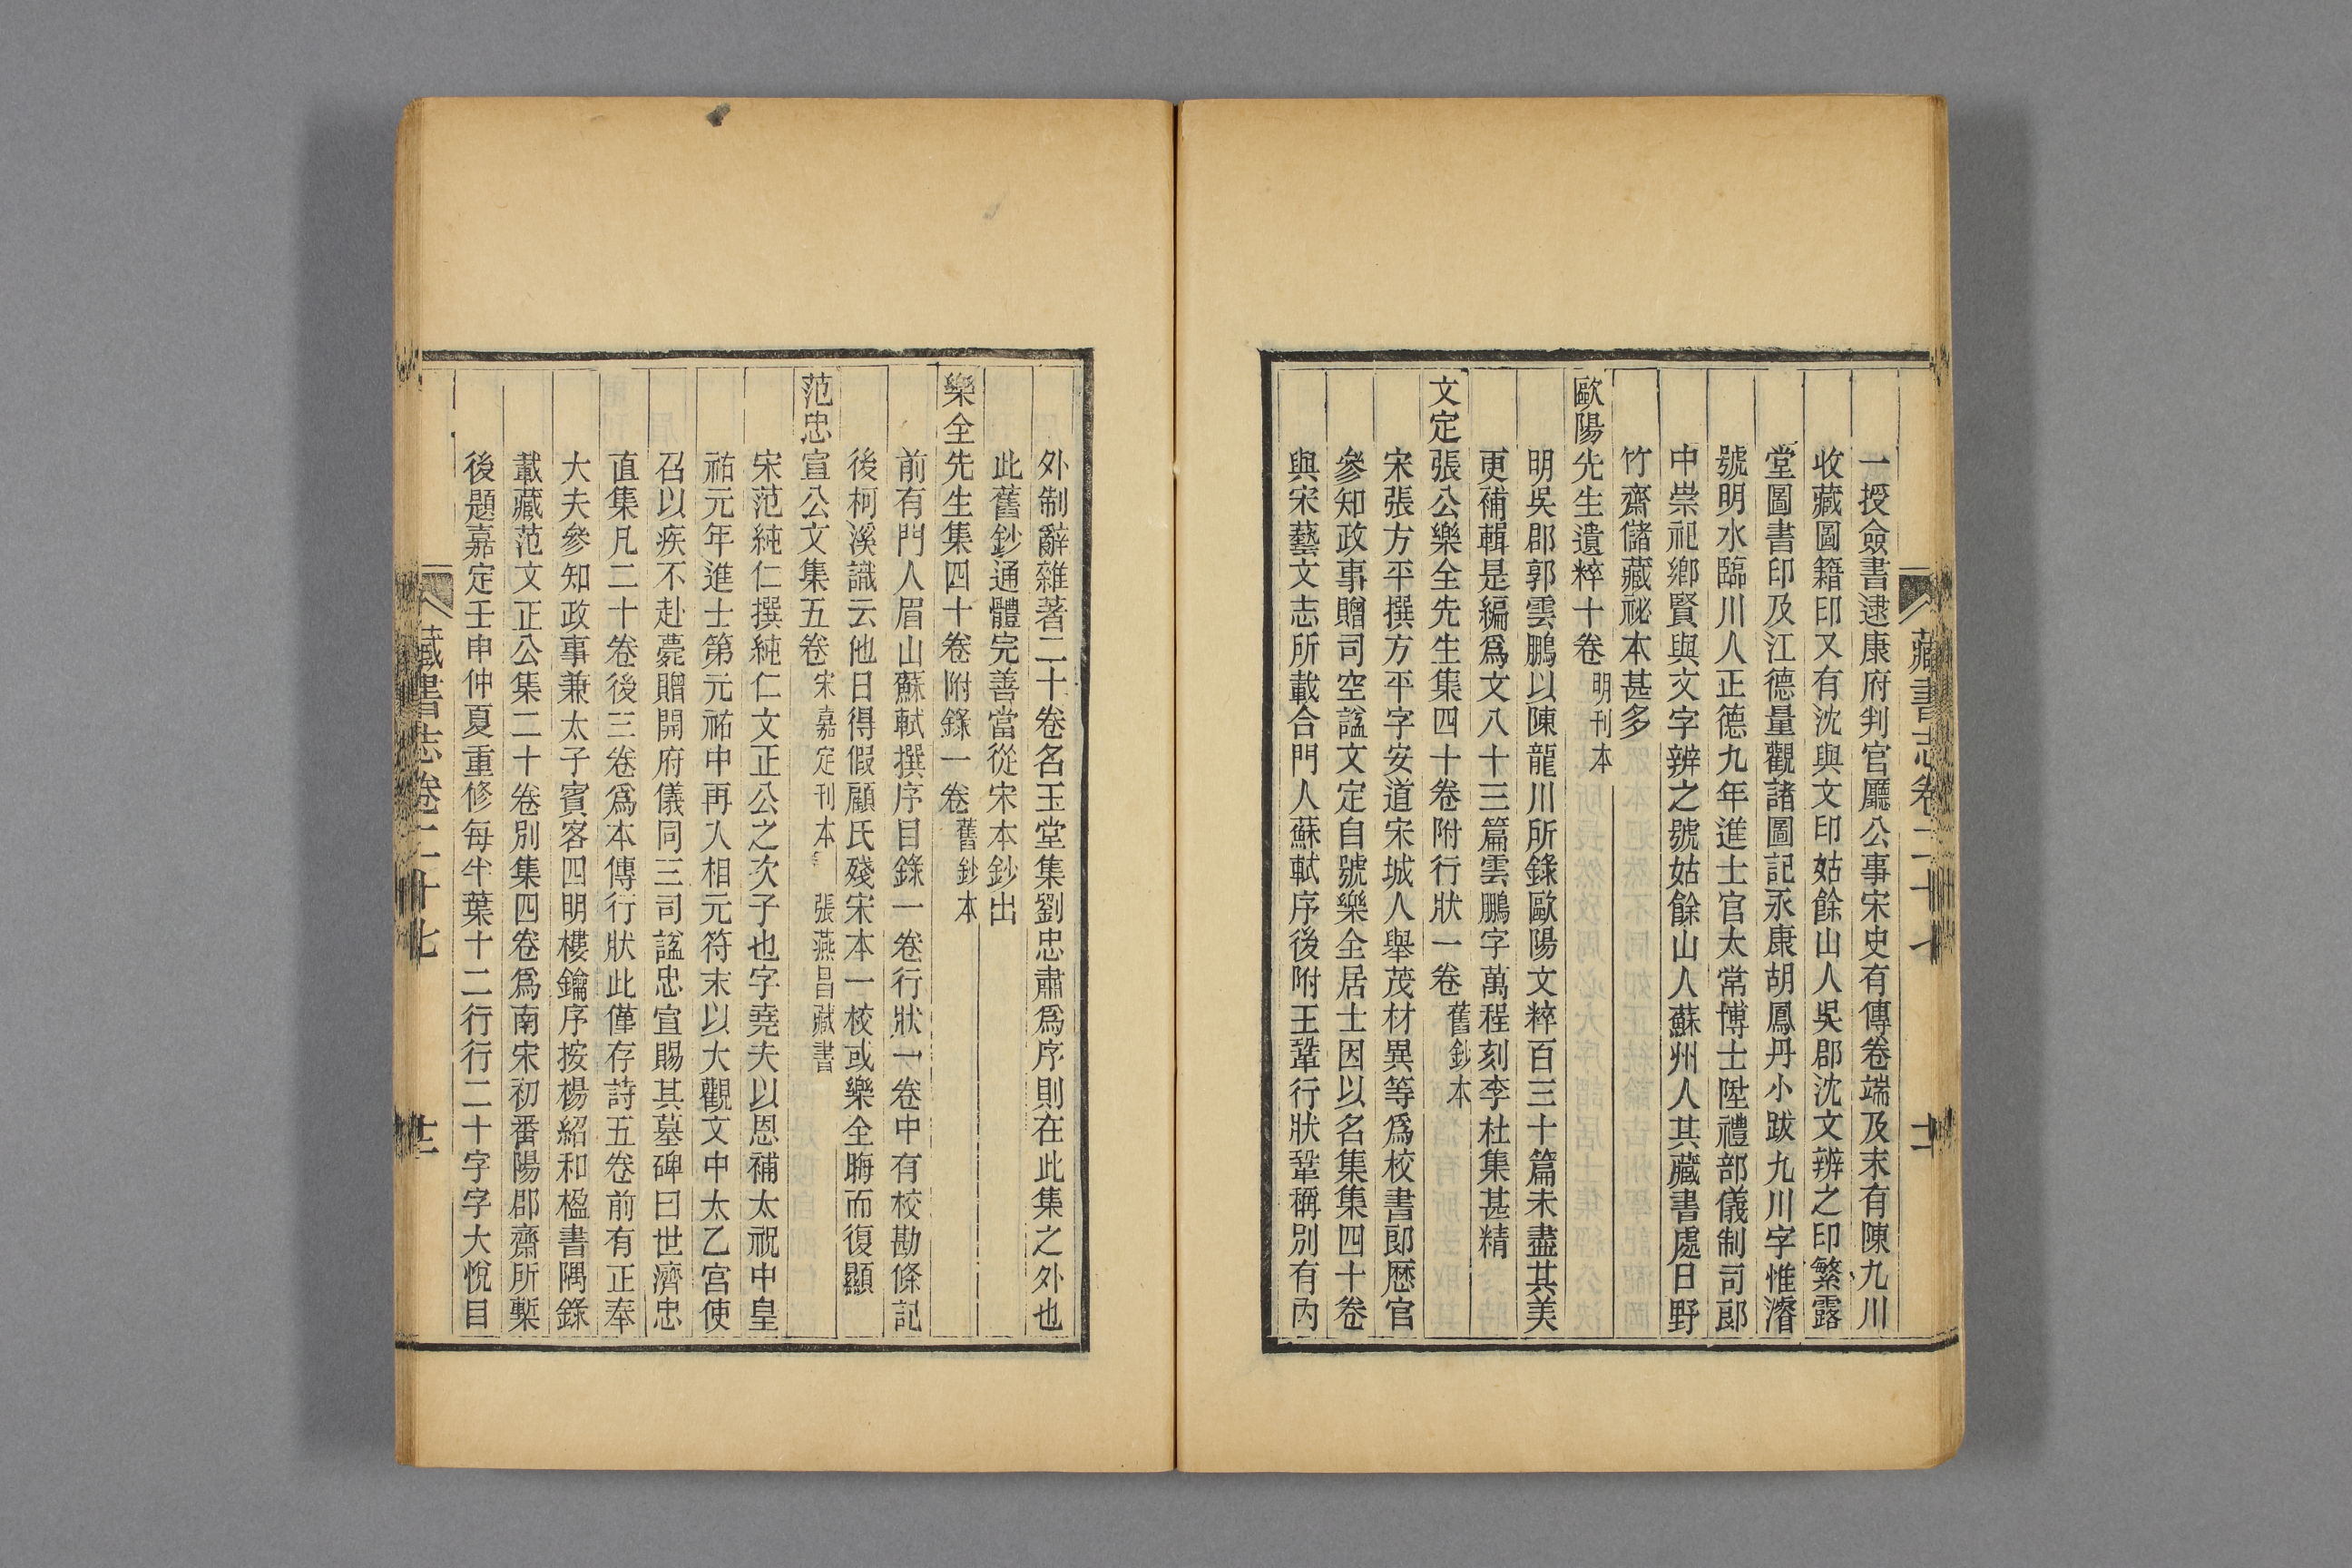 一授僉書逮康府判官廳公事宋史有傳卷端及末有陳九川
收藏圖籍印又有沈與文印姑餘山人吳郡沈文辨之印繁露
堂圖書印及江德量觀諸圖記永康胡鳳丹小跋九川字惟濬
號明水臨川人正德九年進士官太常博士陞禮部儀制司郎
中崇祀鄉賢與文字辨之號姑餘山人蘇州人其藏書處曰野
竹齋儲藏祕本甚多
歐陽先生遺粹十卷 明刊本
明吳郡郭雲鵬以陳龍川所錄歐陽文粹百三十篇未盡其美
更補輯是編爲文八十三篇雲鵬字萬程刻李杜集甚精
文定張公樂全先生集四十卷附行狀一卷 舊鈔本
宋張方平撰方平字安道宋城人舉茂材異等爲校書郎歷官
參知政事贈司空諡文定自號樂全居士因以名集集四十卷
與宋藝文志所載合門人蘇軾序後附王鞏行狀鞏稱別有內
藏書志卷二十七
外制辭雜著二十卷名玉堂集劉忠肅爲序則在此集之外也
此舊鈔通體完善當從宋本鈔出
樂全先生集四十卷附錄一卷 舊鈔本
前有門人眉山蘇軾撰序目錄一卷行狀一卷中有校勘條記
後柯溪識云他日得假顧氏殘宋本一校或樂全晦而復顯
范忠宣公文集五卷 宋嘉定刊本 張燕昌藏書
宋范純仁撰純仁文正公之次子也字堯夫以恩補太祝中皇
祐元年進士第元祐中再入相元符末以大觀文中太乙宮使
召以疾不赴薨贈開府儀同三司諡忠宣賜其墓碑曰世濟忠
直集凡二十卷後三卷爲本傳行狀此僅存詩五卷前有正奉
大夫參知政事兼太子賓客四明樓鑰序按楊紹和楹書隅錄
載藏范文正公集二十卷別集四卷爲南宋初番陽郡齋所槧
後題嘉定壬申仲夏重修每半葉十二行行二十字字大悅目
藏書志卷二十七